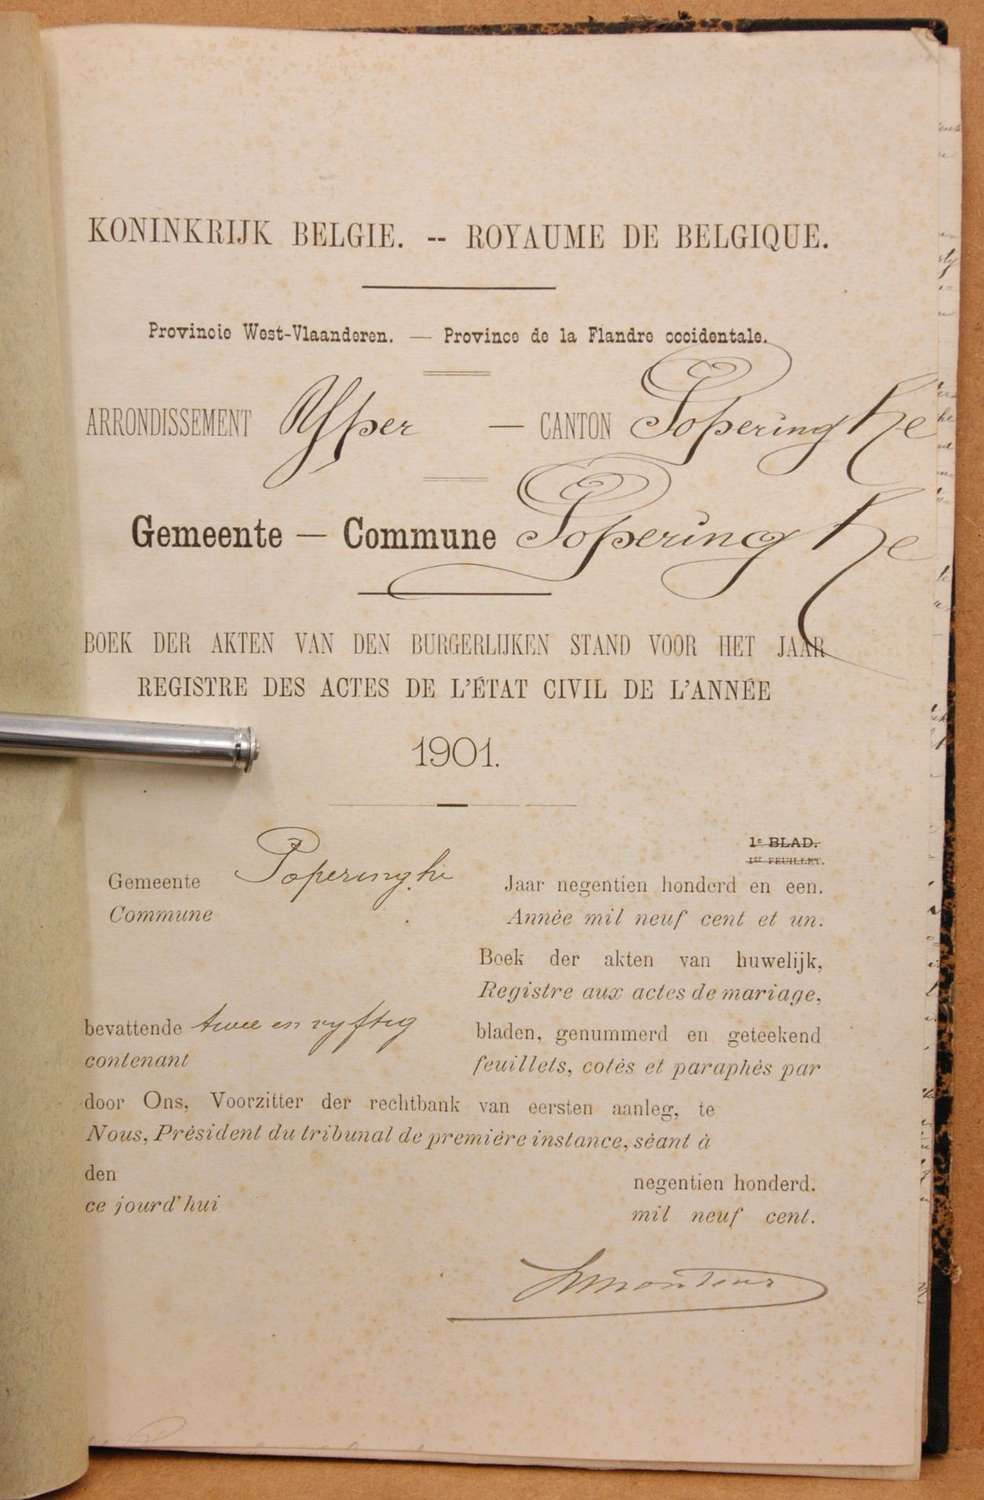 KONINKRIJK BELGIE. -- ROYAUME DE BELGIQUE.
Provincie West-Vlaanderen. — Province de la Flandre occidentale.
ARRONDISSEMENT Ypper — CANTON Poperinghe
Gemeente — Commune Poperinghe
BOEK DER AKTEN VAN DEN BURGERLIJKEN STAND VOOR HET JAAR
REGISTRE DES ACTES DE L'ÉTAT CIVIL DE L'ANNÉE
1901.
1e BLAD.
1er FEUILLET.
Gemeente Poperinghe Jaar negentien honderd en een.
Commune Année mil neuf cent et un.
Boek der akten van huwelijk,
Registre aux actes de mariage,
bevattende twee en vyftig bladen, genummerd en geteekend
contenant feuillets, cotés et paraphés par
door Ons, Voorzitter der rechtbank van eersten aanleg, te
Nous, Président du tribunal de première instance, séant à
den negentien honderd.
ce jourd'hui mil neuf cent.